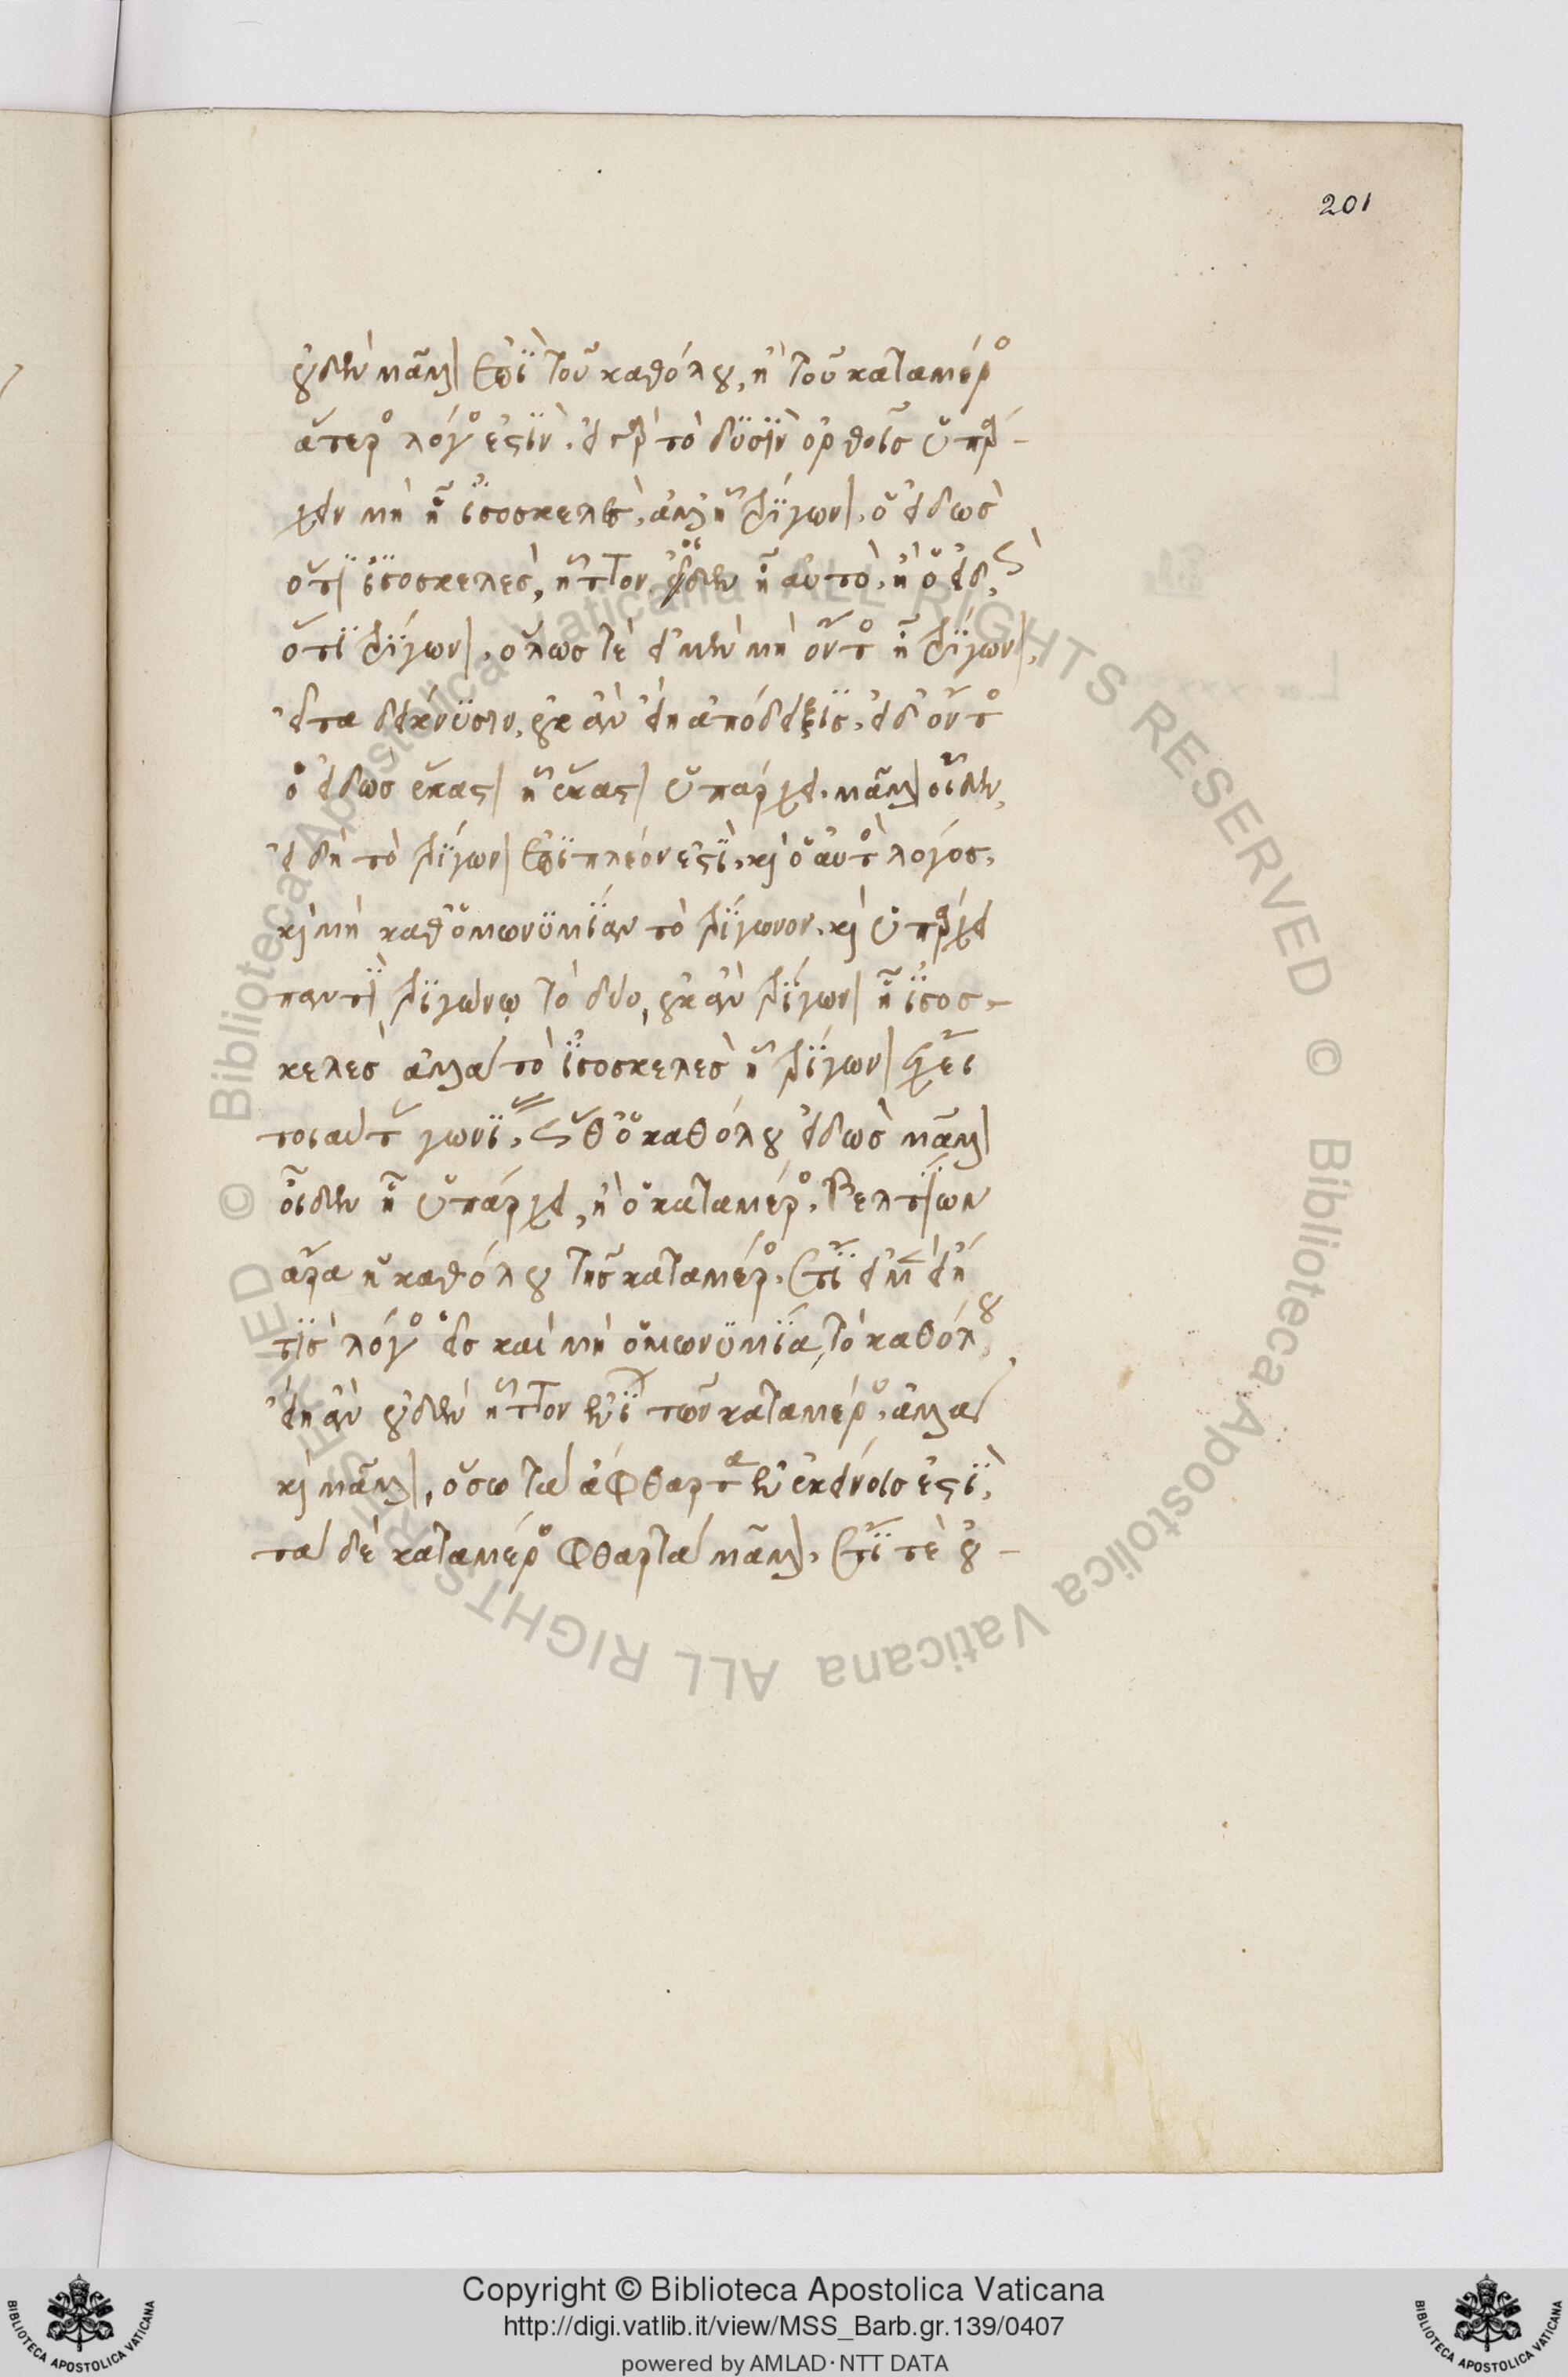 201
οὐδὲν μᾶλλον ἐπὶ τοῦ καθόλου, ἢ τοῦ καταμέρος
ἅτερος λόγος ἐστὶν. εἰ γὰρ τὸ δυσὶν ὀρθαῖς ὑπάρ-
χειν μὴ ᾗ ἰσοσκελὲς, ἀλλ' ᾗ τρίγωνον, ὁ εἰδὼς
ὅτι ἰσοσκελὲς, ἧττον οἶδεν ᾗ αὐτὸ, ἢ ὁ εἰδὼς
ὅτι τρίγωνον, ὅλως τὲ εἰ μὲν μὴ ὄντος ᾗ τρίγωνον,
εἶτα δείκνυσιν, οὐκ ἂν εἴη ἀπόδειξις, εἰ δ' ὄντος
ὁ εἰδὼς ἕκαστον ᾗ ἕκαστον ὑπάρχει, μᾶλλον οἶδεν,
εἰ δὴ τὸ τρίγωνον ἐπὶ πλέον ἐστὶ, καὶ ὁ αὐτὸς λόγος,
καὶ μὴ καθ' ὁμωνυμίαν τὸ τρίγωνον, καὶ ὑπάρχει
παντὶ τριγώνῳ τὸ δύο, οὐκ ἂν τρίγωνον ᾗ ἰσοσ-
κελὲς ἀλλὰ τὸ ἰσοσκελὲς ᾗ τρίγωνον ἔχει
τοιαύτας γωνίας, ὥσθ' ὁ καθόλου εἰδὼς μᾶλλον
οἶδεν ᾗ ὑπάρχει, ἢ ὁ καταμέρος. Βελτίων
ἄρα ἡ καθόλου τῆς καταμέρος. ἔτι εἰ μὲν εἴη
τὶς λόγος εἷς καὶ μὴ ὁμωνυμία τὸ καθόλου,
εἴη ἂν οὐδὲν ἧττον ἐνί τῶν καταμέρος, ἀλλὰ
καὶ μᾶλλον, ὅσω τὰ ἄφθαρτα ἐν ἐκείνοις ἐστὶ,
τὰ δὲ καταμέρος φθαρτὰ μᾶλλον. ἔτι τὲ οὐ-
Copyright © Biblioteca Apostolica Vaticana
http://digi.vatlib.it/view/MSS_Barb.gr.139/0407
powered by AMLAD·NTT DATA
BIBLIOTECA APOSTOLICA VATICANA
BIBLIOTECA APOSTOLICA VATICANA
© Biblioteca Apostolica Vaticana ALL RIGHTS RESERVED © Biblioteca Apostolica Vaticana ALL RIGHTS RESERVED